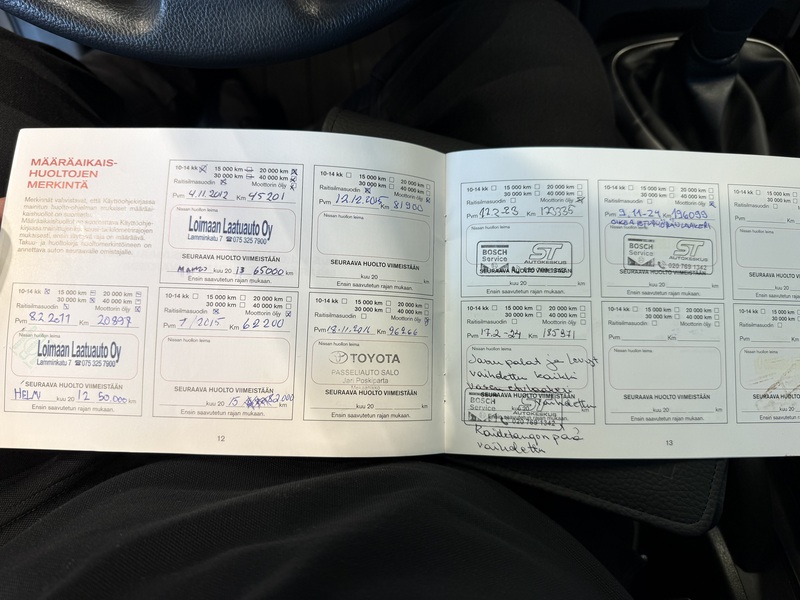 MÄÄRÄAIKAIS-
HUOLTOJEN
MERKINTÄ
10-14 kk 15 000 km 20 000 km
30 000 km 40 000 km
Raitisilmasuodin Moottorin öljy
Pvm 8.2.2011 Km 20897
Nissan huollon leima
Loimaan Laatuauto Oy
Lamminkatu 7 ☎ 075 325 7900
SEURAAVA HUOLTO VIIMEISTÄÄN
HELMI kuu 20 12 50.000 km
Ensin saavutetun rajan mukaan.
10-14 kk 15 000 km 20 000 km
30 000 km 40 000 km
Raitisilmasuodin Moottorin öljy
Pvm 4.11.2012 Km 45201
Nissan huollon leima
Loimaan Laatuauto Oy
Lamminkatu 7 ☎ 075 325 7900
SEURAAVA HUOLTO VIIMEISTÄÄN
kuu 20 13 65000 km
Ensin saavutetun rajan mukaan.
10-14 kk 15 000 km 20 000 km
30 000 km 40 000 km
Raitisilmasuodin Moottorin öljy
Pvm 1/2015 Km 62200
Nissan huollon leima
SEURAAVA HUOLTO VIIMEISTÄÄN
kuu 20 15 km
Ensin saavutetun rajan mukaan.
10-14 kk 15 000 km 20 000 km
30 000 km 40 000 km
Raitisilmasuodin Moottorin öljy
Pvm 12.12.2015 Km 81900
Nissan huollon leima
SEURAAVA HUOLTO VIIMEISTÄÄN
kuu 20 km
Ensin saavutetun rajan mukaan.
10-14 kk 15 000 km 20 000 km
30 000 km 40 000 km
Raitisilmasuodin Moottorin öljy
Pvm 18.11.2016 Km 96266
Nissan huollon leima
TOYOTA
PASSELIAUTO SALO
Jari Poskiparta
SEURAAVA HUOLTO VIIMEISTÄÄN
kuu 20 km
Ensin saavutetun rajan mukaan.
12
10-14 kk 15 000 km 20 000 km
30 000 km 40 000 km
Raitisilmasuodin Moottorin öljy
Pvm 12.2-23 Km
Nissan huollon leima
BOSCH
Service
ST
AUTOKESKUS
SEURAAVA HUOLTO VIIMEISTÄÄN
020 769 1342
kuu 20 km
Ensin saavutetun rajan mukaan.
10-14 kk 15 000 km 20 000 km
30 000 km 40 000 km
Raitisilmasuodin Moottorin öljy
Pvm 17.2-24 Km 185371
Nissan huollon leima
Jarru palat ja levyt
vaihdettu kaikki
vasen
SEURAAVA HUOLTO VIIMEISTÄÄN
vaihdettu
BOSCH
Service
AUTOKESKUS
020 769 1342
Raidetangon pää
vaihdettu
10-14 kk 15 000 km 20 000 km
30 000 km 40 000 km
Raitisilmasuodin Moottorin öljy
Pvm 9.11-24 Km 196099
Nissan huollon leima
ST
AUTOKESKUS
020 769 1342
SEURAAVA HUOLTO VIIMEISTÄÄN
kuu 20 km
Ensin saavutetun rajan mukaan.
10-14 kk 15 000 km 20 000 km
30 000 km 40 000 km
Raitisilmasuodin Moottorin öljy
Pvm Km
Nissan huollon leima
SEURAAVA HUOLTO VIIMEISTÄÄN
kuu 20 km
Ensin saavutetun rajan mukaan.
10-14 kk 15 000 km
30 000 km
Raitisilmasuodin
Pvm Km
Nissan huollon leima
SEURAAVA HUOLTO
kuu 20
Ensin saavutetun
10-14 kk 15 000 km
30 000 km
Raitisilmasuodin
Pvm Km
Nissan huollon leima
SEURAAVA HUOLTO
kuu 20
Ensin saavutetun
13